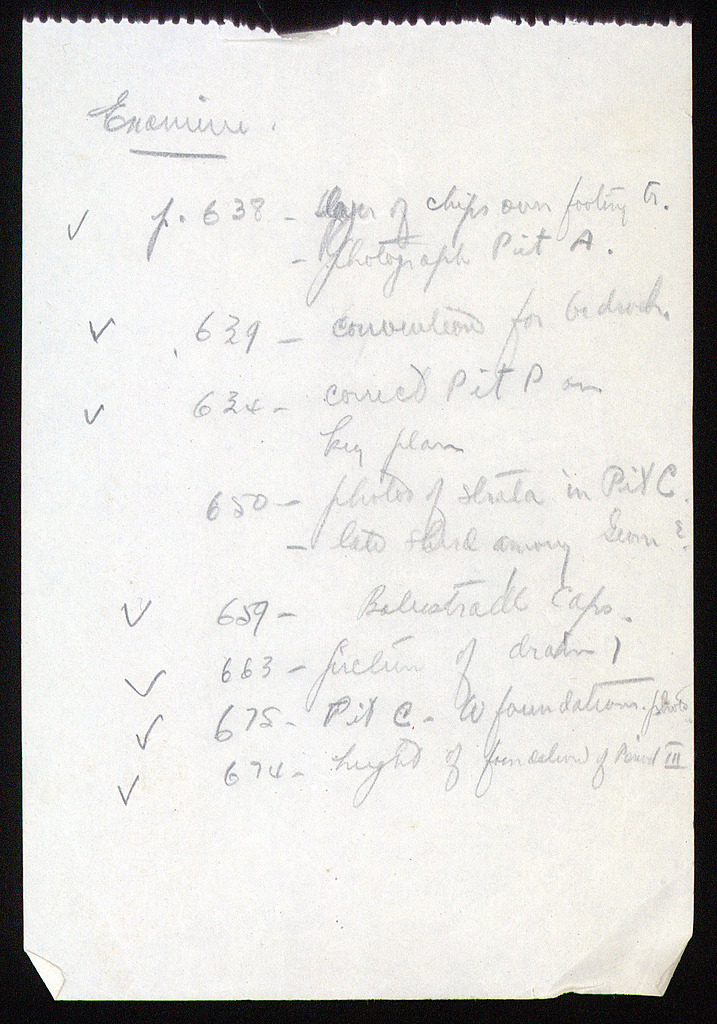 Examine.
✓ p. 638 - layer of chips over footing tr.
- photograph Pit A.
✓ 639 - convention for bedrock.
✓ 634 - correct Pit P on
key plan
650 - photos of strata in Pit C.
- late sherd among Geom
✓ 659 - Balustrade Caps.
✓ 663 - section of drain
✓ 675 - Pit C. - W foundations. photo
✓ 674 - height of foundation of Period III